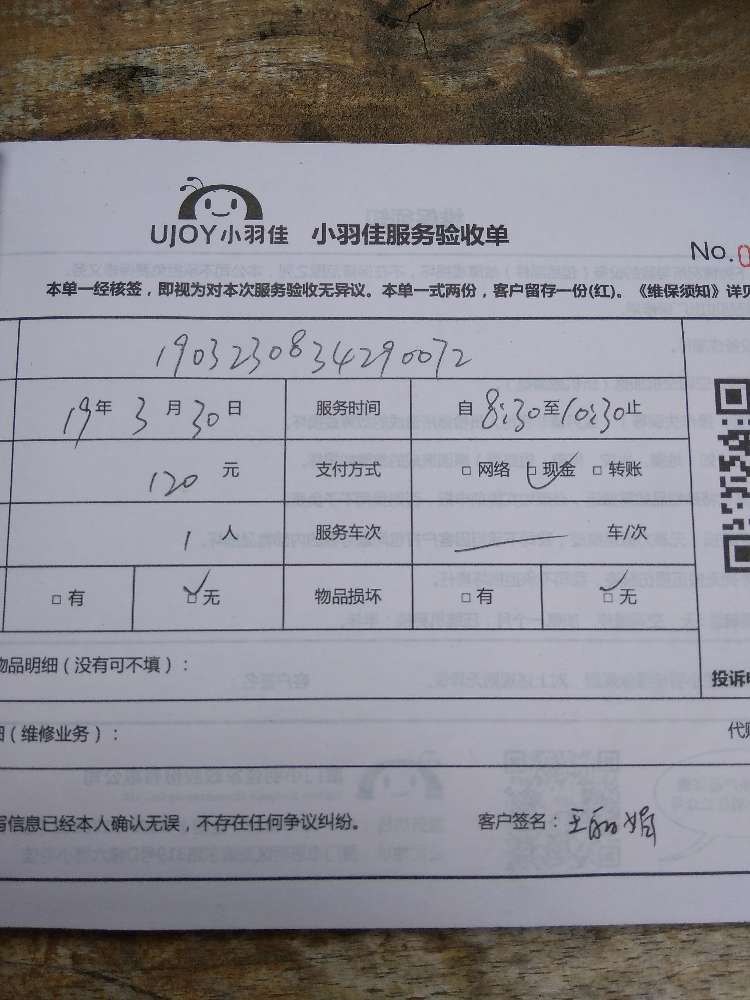 UJOY小羽佳 小羽佳服务验收单
No.0
本单一经核签，即视为对本次服务验收无异议。本单一式两份，客户留存一份(红)。《维保须知》详见
1903230834290072
19年3月30日 服务时间 自8:30至10:30止
120元 支付方式 □网络 □现金 □转账
1人 服务车次 车/次
□有 □无 物品损坏 □有 □无
物品明细（没有可不填）：
投诉
（维修业务）：
代
写信息已经本人确认无误，不存在任何争议纠纷。 客户签名：王丽娟